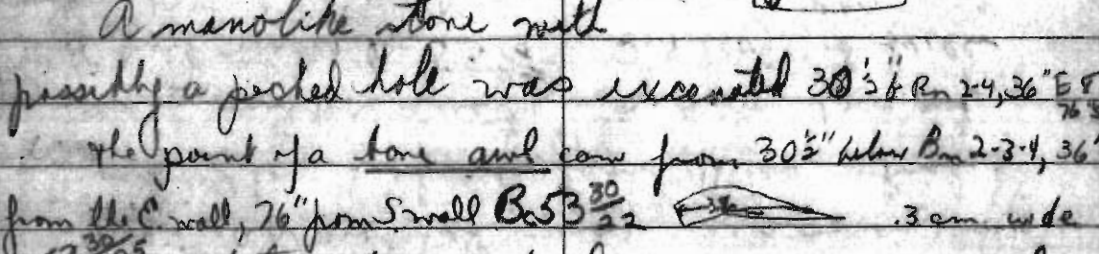 A manolike stone with
possibly a pecked hole was excavated 30 ½" 2-4, 36" E
76"
the point of a bone awl cam from 30½" below Bm 2-3-4, 36"
from the E. wall, 76" from S wall Bc53 30/22 .3 cm wide